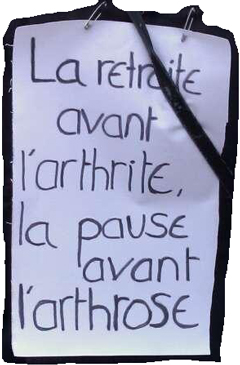 La retraite
avant
l'arthrite,
la pause
avant
l'arthrose